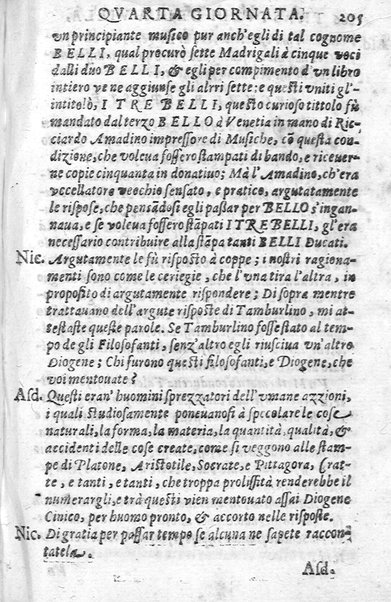 QVARTA GIORNATA. 205
vn principiante musico pur anch'egli di tal cognome
BELLI, qual procurò sette Madrigali à cinque voci
dalli duo BELLI, & egli per compimento d'vn libro
intiero ve ne aggiunse gli alrri sette; e questi vniti gl'in-
titolò, I TRE BELLI, questo curioso tittolo fù
mandato dal terzo BELLO à Venetia in mano di Ric-
ciardo Amadino impressore di Musiche, cō questa con-
dizione, che voleva fossero stampati di bando, e riceuer-
ne copie cinquanta in donatiuo; Mà l'Amadino, ch'era
vccellatore veochio sensato, e pratico, argutatamente
le rispose, che pensādosi egli passar per BELLO s'ingan-
naua, e se voleua fossero stāpati I TRE BELLI, gl'era
necessario contribuire alla stāpa tanti BELLI Ducati.
Nic. Argutamente le fù risposto à coppe; i nostri ragiona-
menti sono come le ceriegie, che l'vna tira l'altra, in
proposito di argutamente rispondere; Di sopra mentre
trattauamo dell'argute risposte di Tamburlino, mi at-
testaste queste parole. Se Tamburlino fosse stato al tem-
po de gli Filosofanti, senz'altro egli riusciua vn'altro
Diogene; Chi furono questi filosofanti, e Diogene, che
voi mentouate?
Asd. Questi eran' huomini sprezzatori dell'vmane azzioni,
i quali studiosamente poneuanosi à specolare le cose
naturali, la forma, la materia, la quantità, qualità, &
accidenti delle cose create, come si veggono alle stam-
pe di Platone, Aristotile, Socrate, e Pittagora, (rat-
te, e tanti, e tanti, che troppa prolissità renderebbe il
numerargli, e trà questi vien mentouato assai Diogene
Cinico, per huomo pronto, & accorto nelle risposte.
Nic. Di gratia per passar tempo se alcuna ne sapete raccon-
tatela.
Asd.